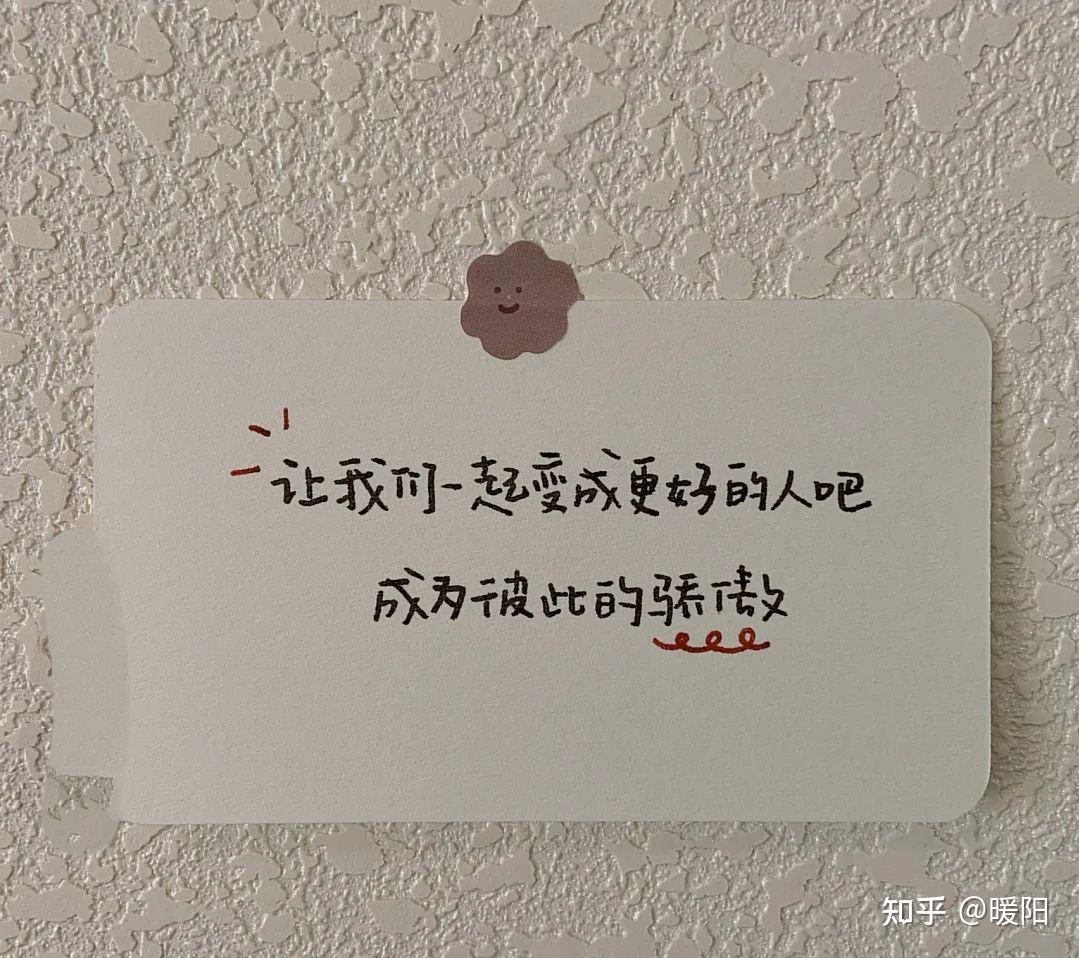 让我们一起变成更好的人吧
成为彼此的骄傲
知乎 @暖阳